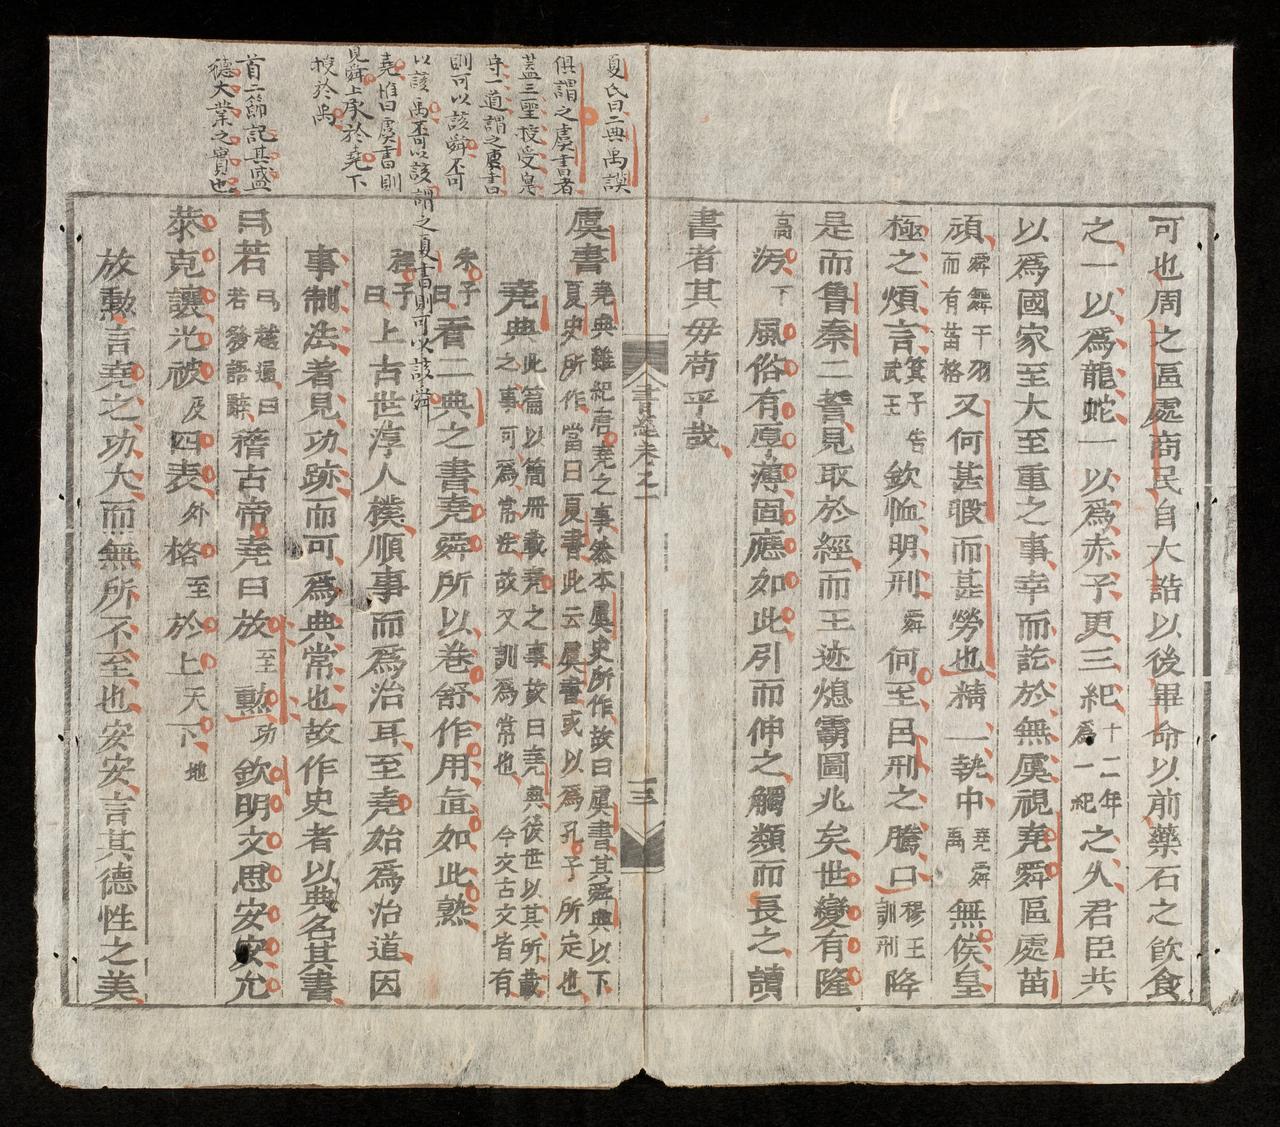 可也周之區處商民自大誥以後畢命以前藥石之飲食
之一以爲龍蛇一以爲赤子更三紀十二年爲一紀之久君臣共
以爲國家至大至重之事幸而訖於無虞視堯舜區處苗
頑舜舞干羽而有苗格又何甚暇而甚勞也精一執中堯舜禹無俟皇
極之煩言箕子告武王欽恤明刑舜何至呂刑之騰口穆王訓刑降
是而魯秦二誓見取於經而王迹熄霸圖兆矣世變有隆
高汚下風俗有厚薄固應如此引而伸之觸類而長之讀
書者其毋苟乎哉
書卷之一
三
夏氏曰二典禹謨
俱謂之虞書者
蓋三聖授受
守一道謂之
則可以該舜不可
以該禹不可以該謂之夏書則可以該舜
堯惟曰虞書則
見舜上承於堯下
授於禹
首二節記其盛
德大業之實也
虞書堯典雖紀唐堯之事然本虞史所作故曰虞書其舜典以下夏史所作當曰夏書此云虞書或以爲孔子所定也
堯典此篇以簡冊載堯之事故曰堯典後世以其所載之事可爲常法故又訓爲常也 今文古文皆有
朱子曰看二典之書堯舜所以卷舒作用直如此熟
程子曰上古世淳人樸順事而爲治耳至堯始爲治道因
事制法著見功跡而可爲典常也故作史者以典名其書
曰若曰越通曰若發語辭稽古帝堯曰放至勳功欽明文思安安允
恭克讓光被及四表外格至於上天下地
放勳言堯之功大而無所不至也安安言其德性之美